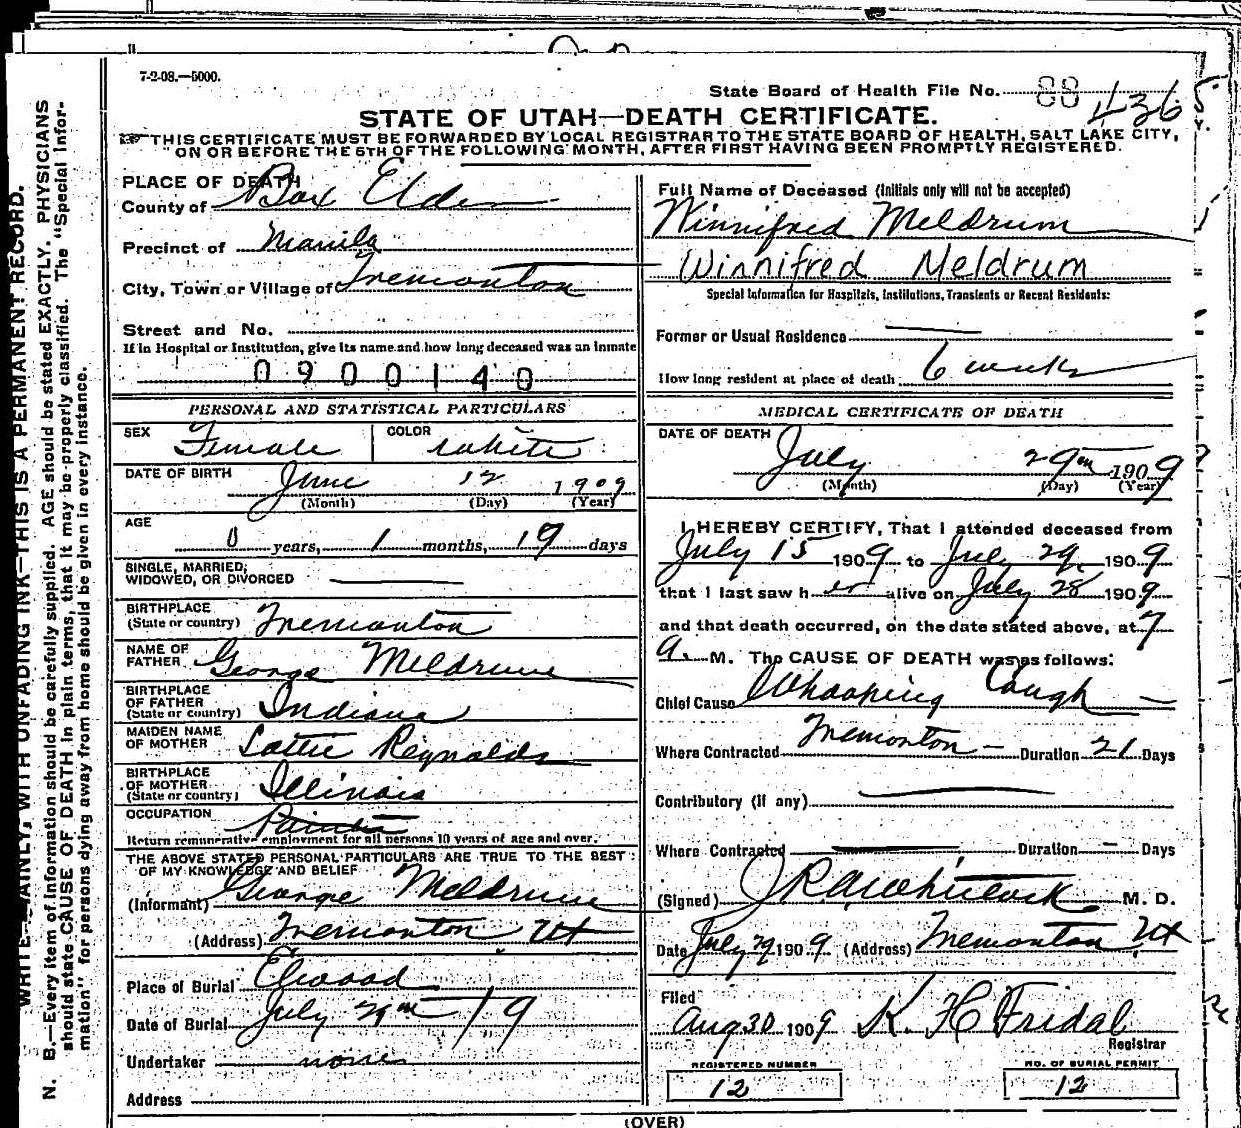 7-2-08.—5000.
State Board of Health File No. 88 436
STATE OF UTAH—DEATH CERTIFICATE.
THIS CERTIFICATE MUST BE FORWARDED BY LOCAL REGISTRAR TO THE STATE BOARD OF HEALTH, SALT LAKE CITY,
ON OR BEFORE THE 5TH OF THE FOLLOWING MONTH, AFTER FIRST HAVING BEEN PROMPTLY REGISTERED.
WRITE PLAINLY, WITH UNFADING INK—THIS IS A PERMANENT RECORD.
N. B.—Every item of information should be carefully supplied. AGE should be stated EXACTLY. PHYSICIANS
should state CAUSE OF DEATH in plain terms, that it may be properly classified. The "Special Infor-
mation" for persons dying away from home should be given in every instance.
PLACE OF DEATH
County of Box Elder
Precinct of Manila
City, Town or Village of Tremonton
Street and No.
If in Hospital or Institution, give its name and how long deceased was an inmate
0900140
PERSONAL AND STATISTICAL PARTICULARS
SEX Female COLOR white
DATE OF BIRTH June 12 1909
(Month) (Day) (Year)
AGE
0 years, 1 months, 19 days
SINGLE, MARRIED,
WIDOWED, OR DIVORCED
BIRTHPLACE
(State or country) Tremonton
NAME OF
FATHER George Meldrum
BIRTHPLACE
OF FATHER
(State or country) Indiana
MAIDEN NAME
OF MOTHER Lottie Reynolds
BIRTHPLACE
OF MOTHER
(State or country) Illinois
OCCUPATION Painter
Return remunerative employment for all persons 10 years of age and over.
THE ABOVE STATED PERSONAL PARTICULARS ARE TRUE TO THE BEST
OF MY KNOWLEDGE AND BELIEF
(Informant) George Meldrum
(Address) Tremonton Ut
Place of Burial Elwood
Date of Burial July 29th / 9
Undertaker none
Address
Full Name of Deceased (Initials only will not be accepted)
Winnifred Meldrum
Winnifred Meldrum
Special Information for Hospitals, Institutions, Transients or Recent Residents:
Former or Usual Residence
How long resident at place of death 6 weeks
MEDICAL CERTIFICATE OF DEATH
DATE OF DEATH July 29th 1909
(Month) (Day) (Year)
I HEREBY CERTIFY, That I attended deceased from
July 15 1909 to July 29, 1909
that I last saw h er alive on July 28 1909
and that death occurred, on the date stated above, at 7
a. M. The CAUSE OF DEATH was as follows:
Chief Cause Whooping Cough
Where Contracted Tremonton Duration 21 Days
Contributory (if any)
Where Contracted Duration — Days
(Signed) M. D.
Date July 29 1909 (Address) Tremonton Ut
Filed
Aug 30 1909 K. H Fridal
Registrar
REGISTERED NUMBER
12
NO. OF BURIAL PERMIT
12
(OVER)